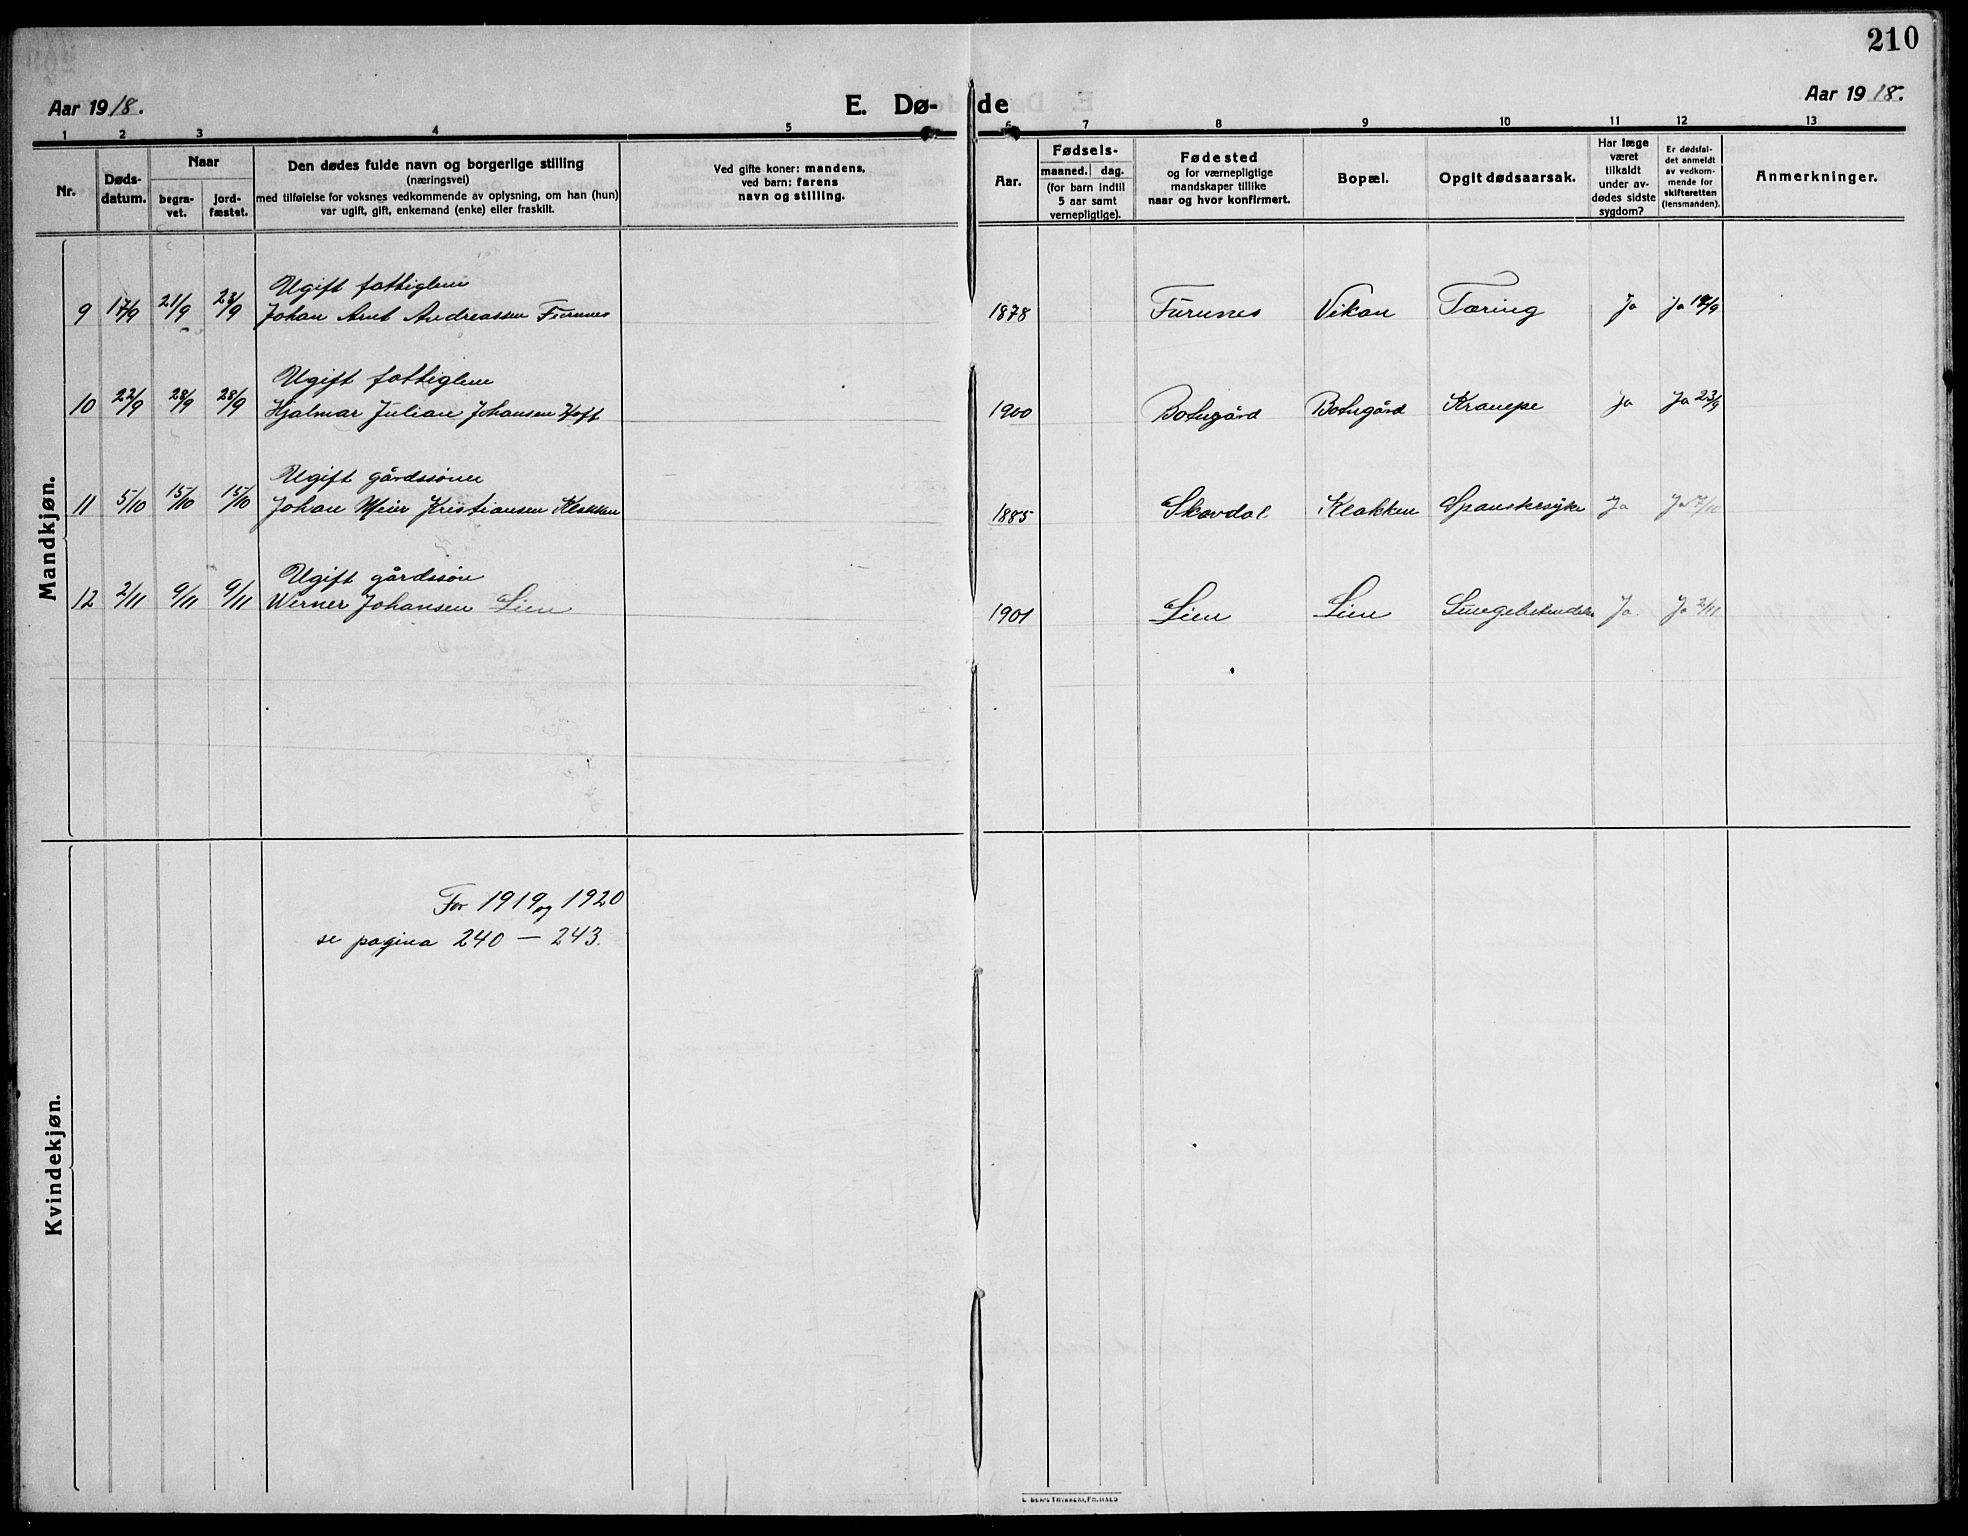 210
Aar 1918.
E. Dø-
de
Aar 1918.
1 2 3 4 5 6 7 8 9 10 11 12 13
Nr.
Døds-
datum.
Naar
begra-
vet.
jord-
fæstet.
Den dødes fulde navn og borgerlige stilling
(næringsvei)
med tilføielse for voksnes vedkommende av oplysning, om han (hun)
var ugift, gift, enkemand (enke) eller fraskilt.
Ved gifte koner: mandens,
ved barn: farens
navn og stilling.
Aar.
Fødsels-
maaned. dag.
(for barn indtil
5 aar samt
vernepligtige).
Fødested
og for værnepligtige
mandskaper tillike
naar og hvor konfirmert.
Bopæl.
Opgit dødsaarsak.
Har læge
været
tilkaldt
under av-
dødes sidste
sygdom?
Er dødsfal-
det anmeldt
av vedkom-
mende for
skifteretten
(lensmanden).
Anmerkninger.
Mandkjøn.
Ugift fattiglem
9 17/9 21/9 23/9 Johan Arnt Andreassen Furunes 1878 Furunes Vikan Tæring Ja Ja 18/9
Ugift fattiglem
10 22/9 28/9 28/9 Hjalmar Julian Johansen Hoft 1900 Botngård Botngård Krampe Ja Ja 23/9
Ugift gårdssønn
11 5/10 15/10 15/10 Johan Meier Kristiansen Klakken 1885 Skavdal Klakken Spanskesyke Ja Ja 7/10
Ugift gårdssøn
12 2/11 9/11 9/11 Werner Johansen Lien 1901 Lien Lien Lungebetendelse Ja. Ja 2/11
Kvindekjøn.
For 1919 og 1920
se pagina 240 — 243.